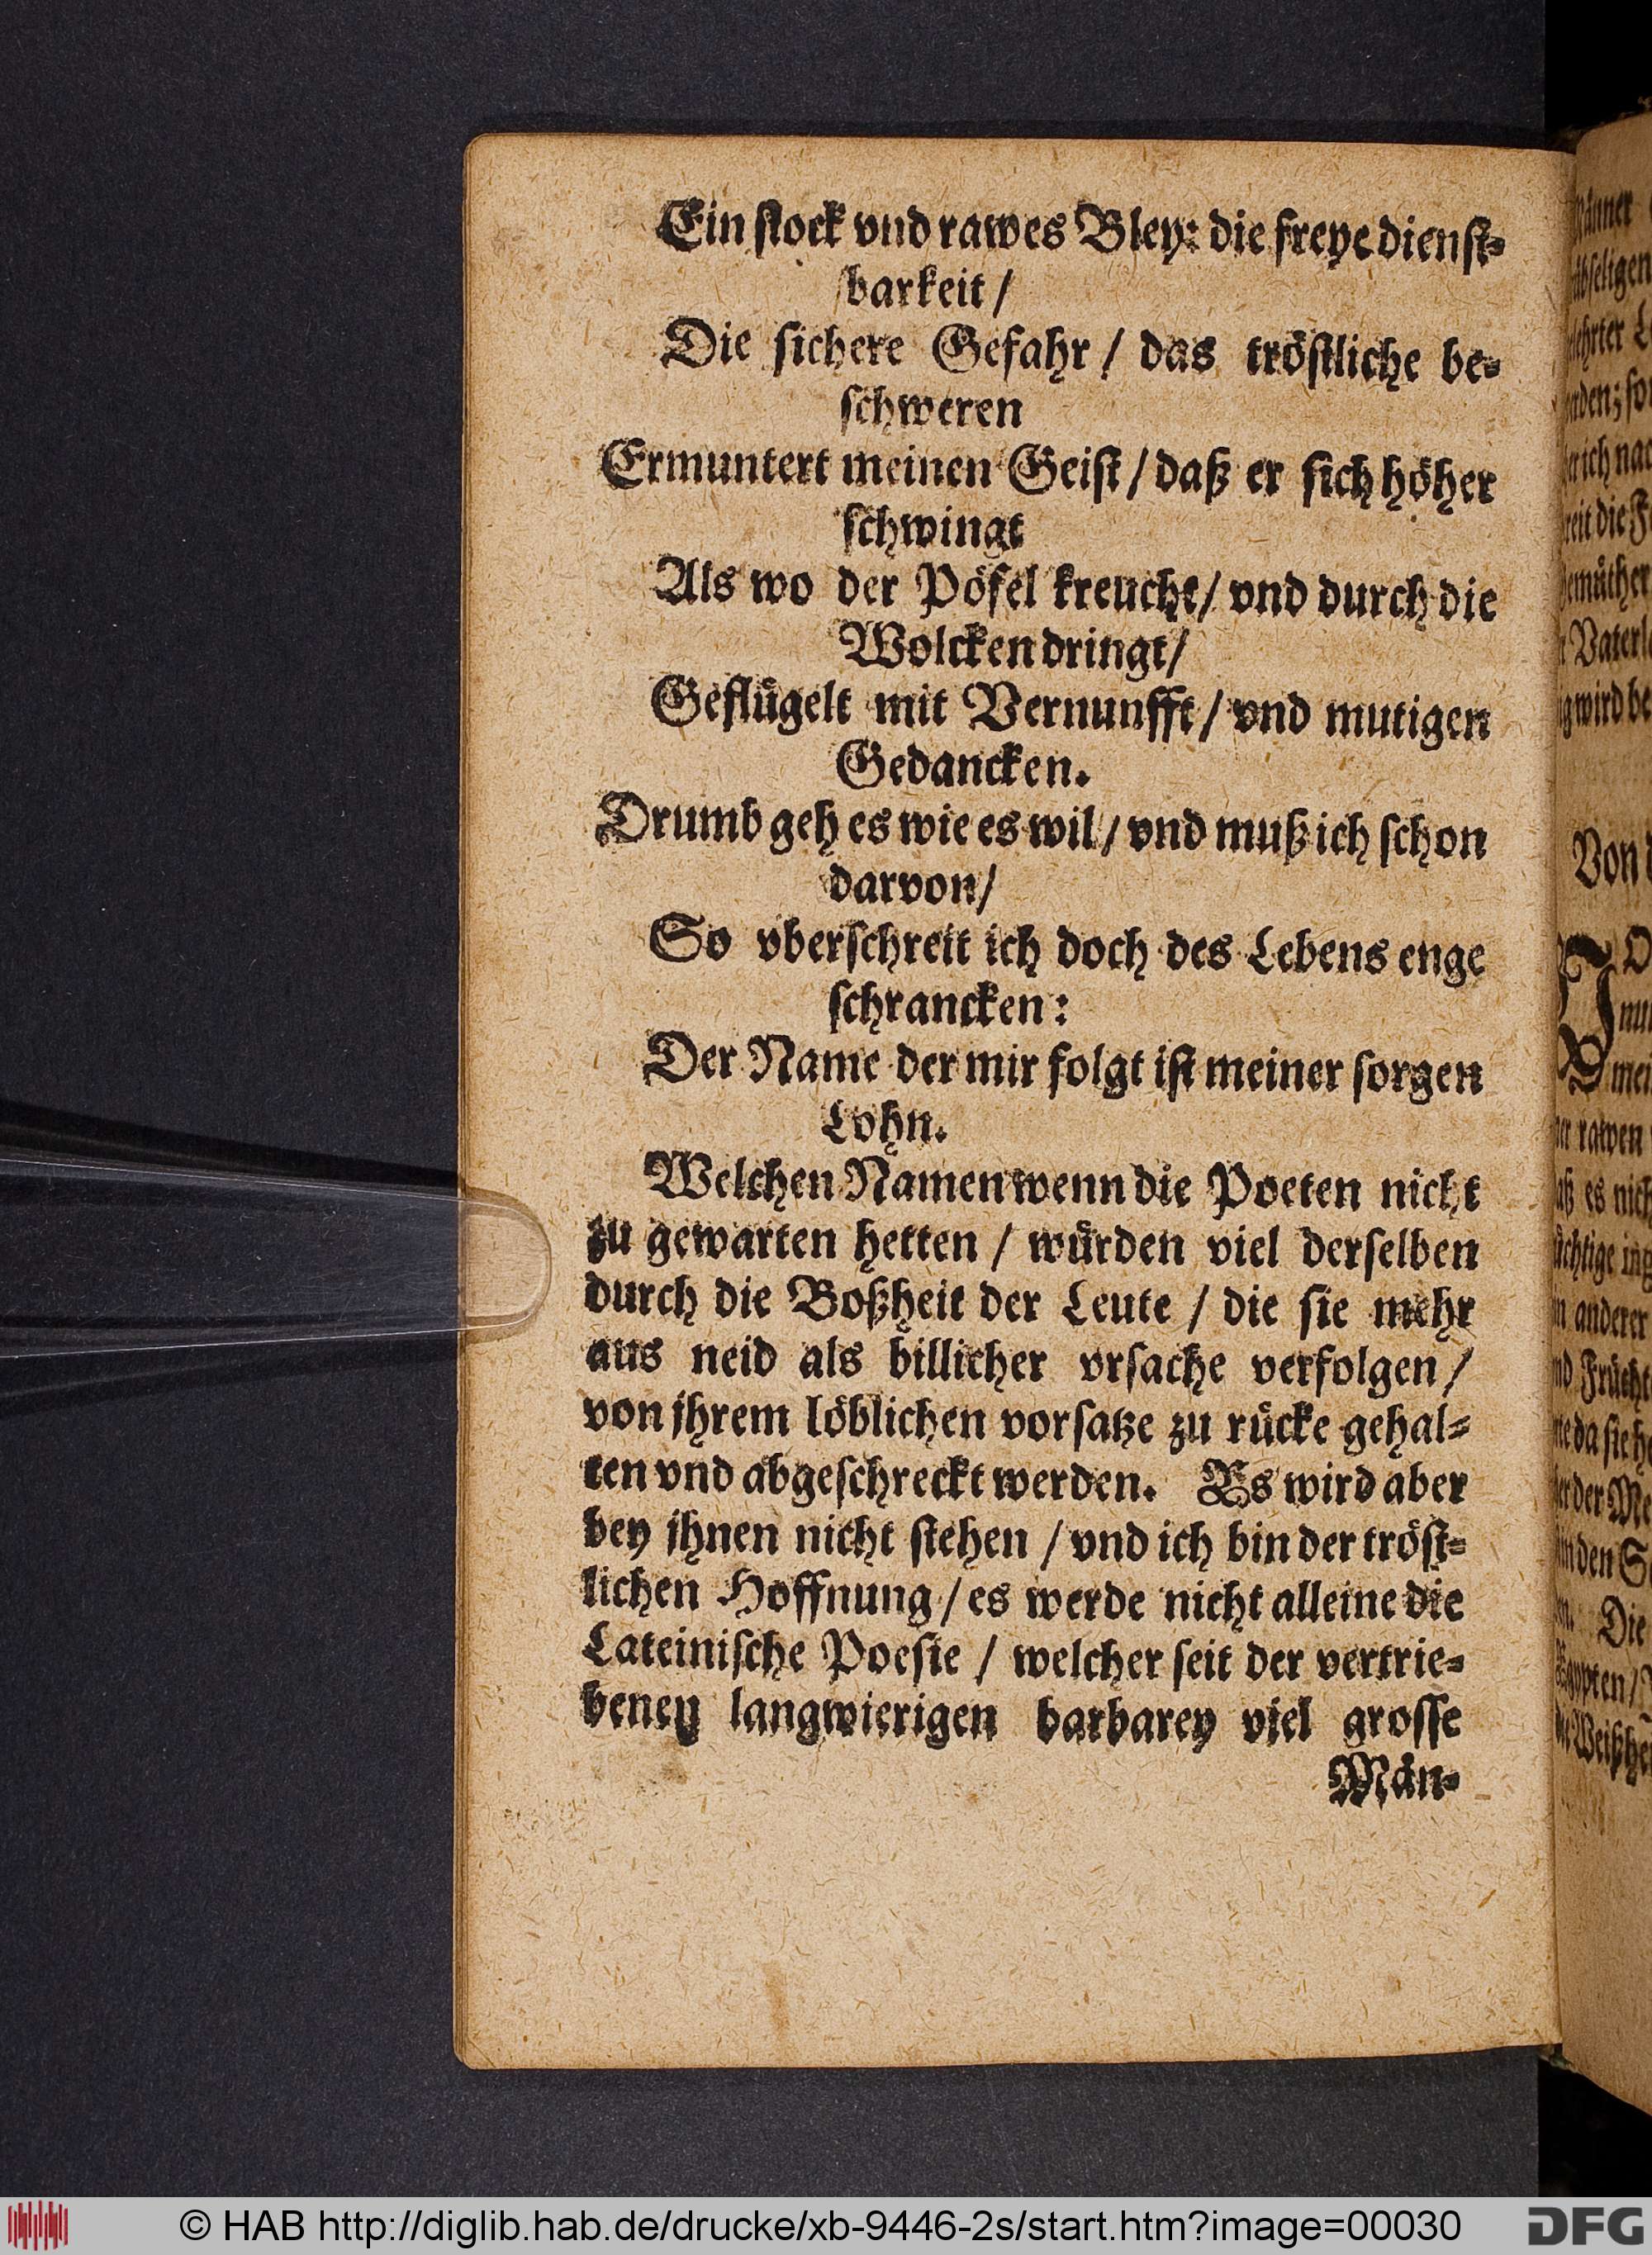 Ein ſtock vnd rawes Bley: die freye dienſt⸗
barkeit /
Die ſichere Gefahr / das tröſtliche be⸗
ſchweren
Ermuntert meinen Geiſt / daß er ſich höher
ſchwingt
Als wo der Pöfel kreucht / vnd durch die
Wolcken dringt /
Geflügelt mit Vernunfft / vnd mutigen
Gedancken.
Drumb geh es wie es wil / vnd muß ich ſchon
darvon /
So vberſchreit ich doch des Lebens enge
ſchrancken:
Der Name der mir folgt iſt meiner ſorgen
Lohn.
Welchen Namen wenn die Poeten nicht
zu gewarten hetten / würden viel derſelben
durch die Boßheit der Leute / die ſie mehr
aus neid als billicher vrſache verfolgen /
von jhrem löblichen vorſatze zu rücke gehal⸗
ten vnd abgeſchreckt werden. Es wird aber
bey jhnen nicht ſtehen / vnd ich bin der tröſt⸗
lichen Hoffnung / es werde nicht alleine die
Lateiniſche Poeſie / welcher ſeit der vertrie⸗
benen langwierigen barbarey viel groſſe
Män⸗
Von
rawen
es
anderer
der
den
Die
© HAB http://diglib.hab.de/drucke/xb-9446-2s/start.htm?image=00030
DFG